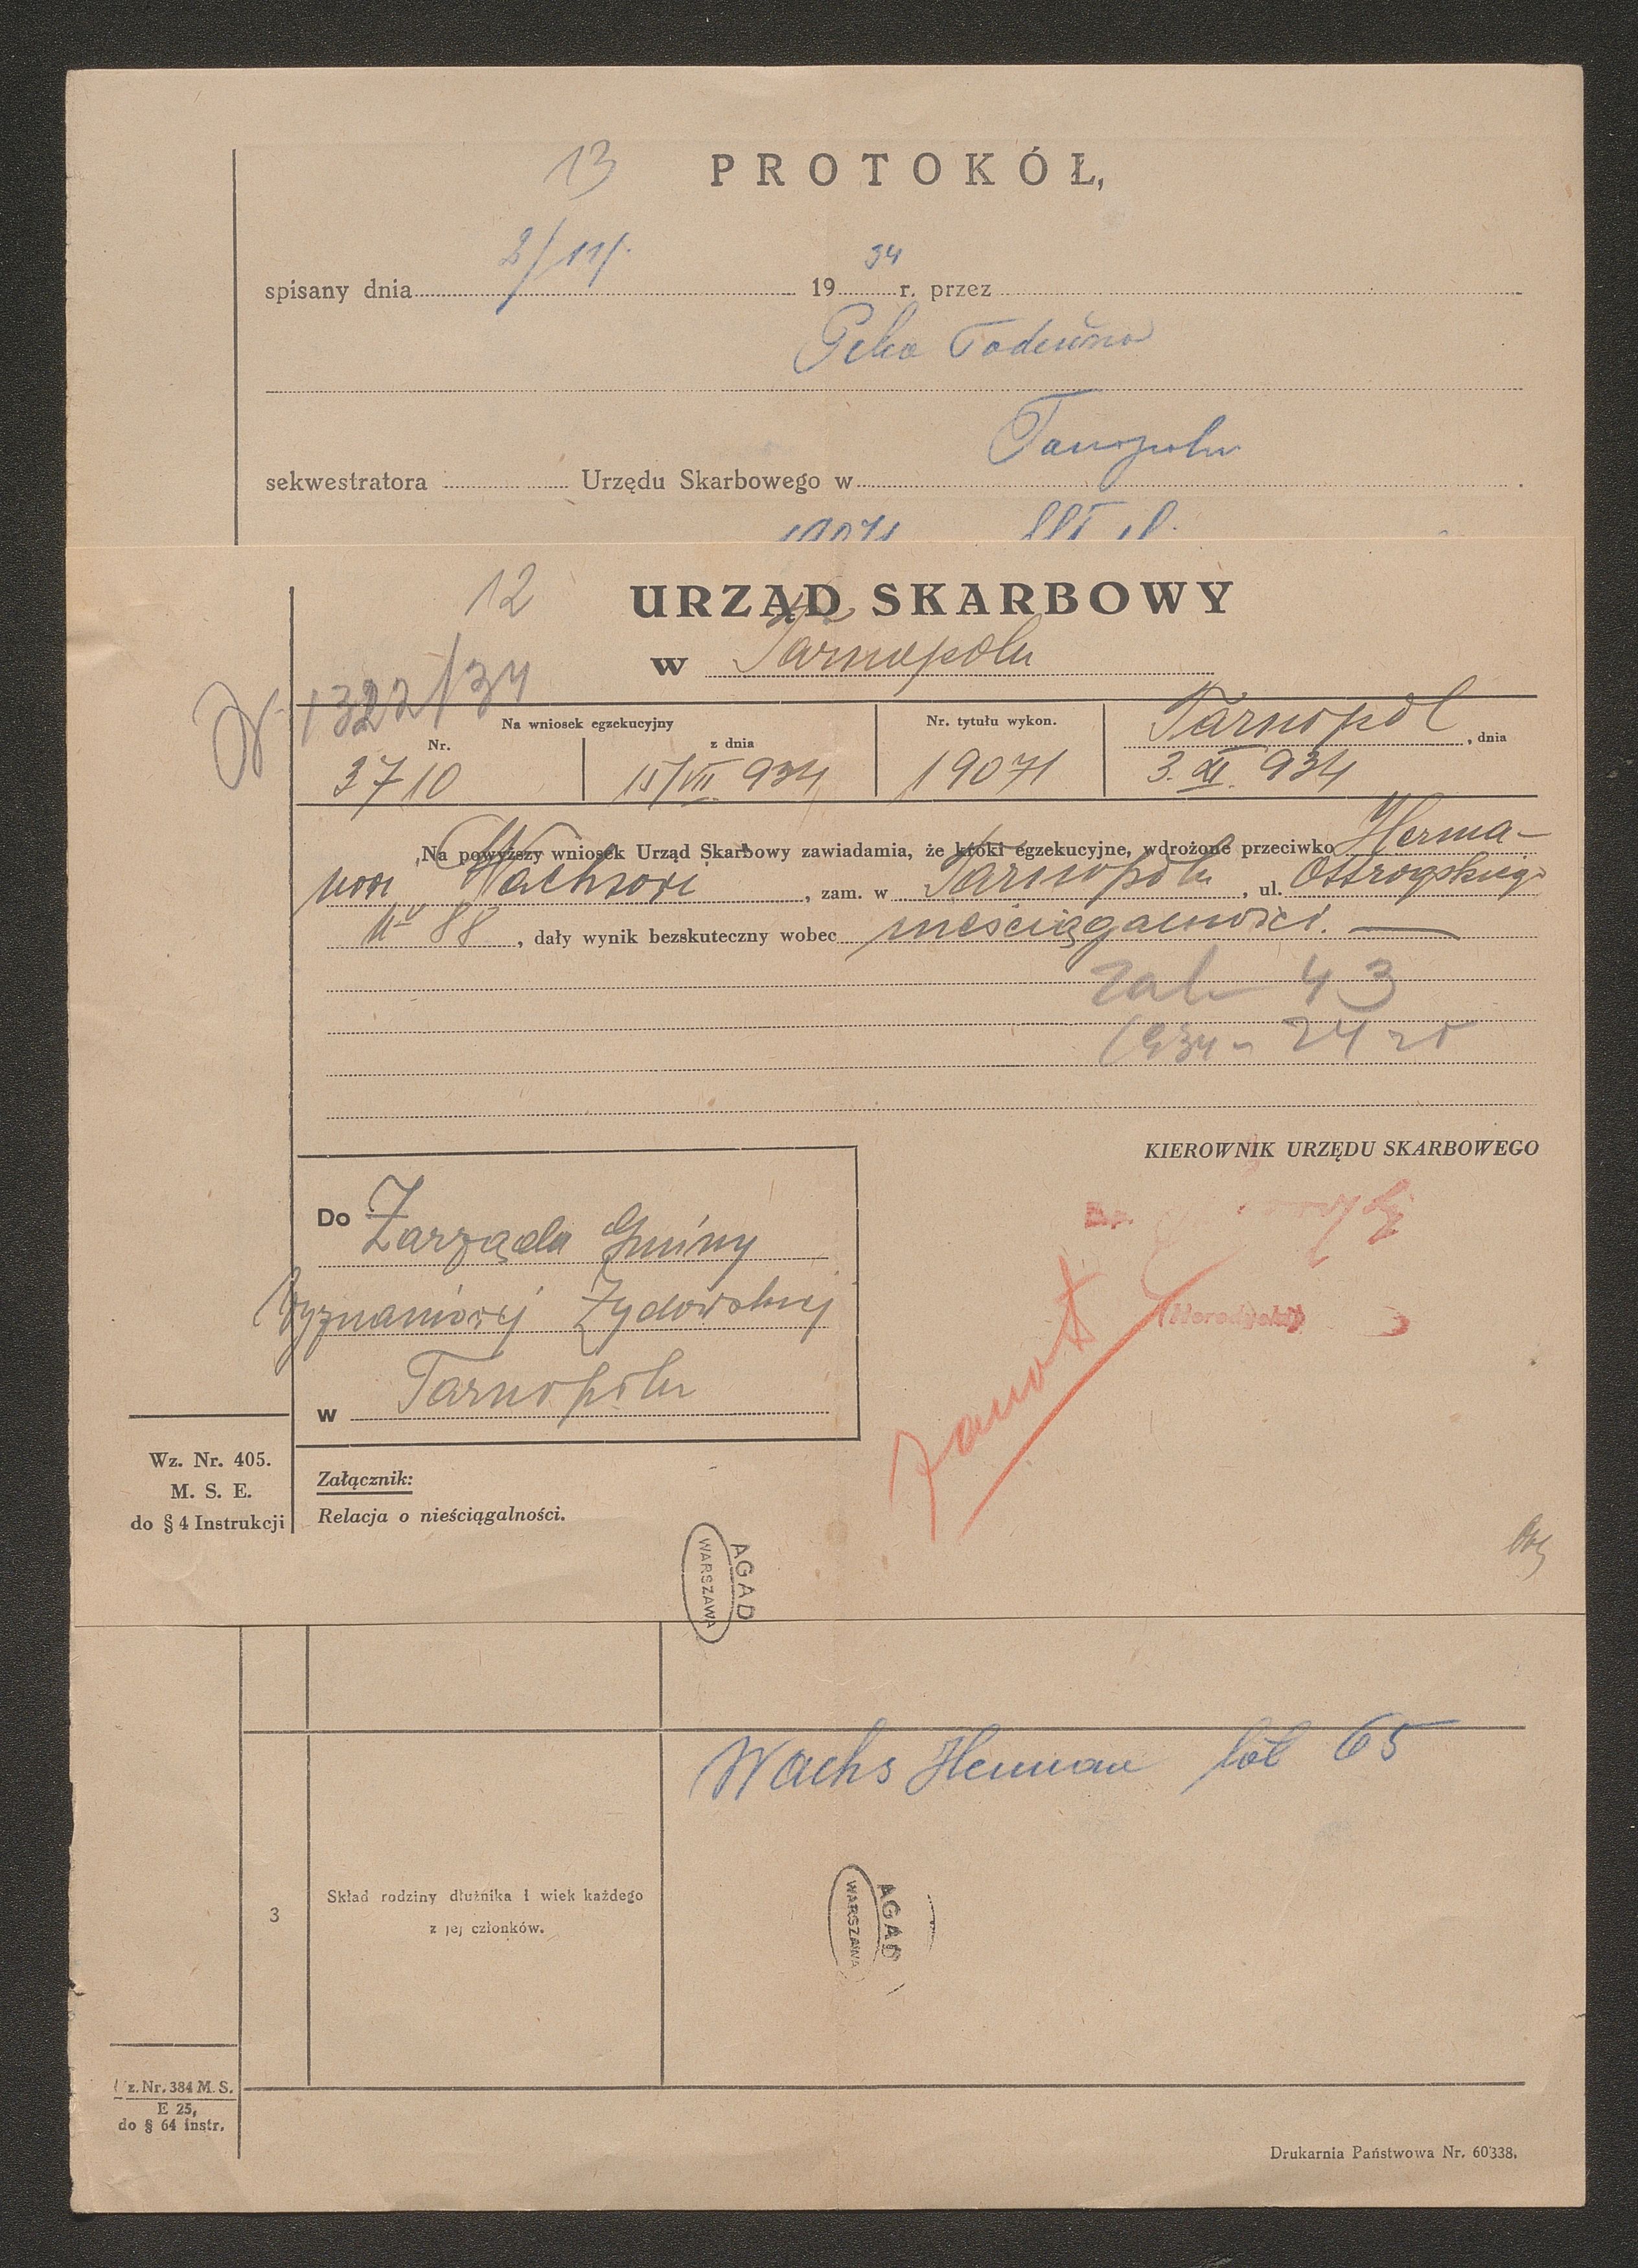 13 PROTOKÓŁ,
spisany dnia 2/11. 1934 r. przez
Tadeusza
sekwestratora Urzędu Skarbowego w Tarnopolu
19071
12 URZĄD SKARBOWY
w Tarnopolu
N 1322/34
Na wniosek egzekucyjny
Nr. 3710 z dnia 15/VII 934
Nr. tytułu wykon. 19071
Tarnopol, dnia 3. XI. 934
Na powyższy wniosek Urząd Skarbowy zawiadamia, że kroki egzekucyjne, wdrożone przeciwko Herma-
nowi Wachsowi, zam. w Tarnopolu, ul. Ostrogskiego
Nr 88, dały wynik bezskuteczny wobec nieściągalności.
Zal 43
1934 - 24 zł
KIEROWNIK URZĘDU SKARBOWEGO
Do Zarządu Gminy
Wyznaniowej Żydowskiej
w Tarnopolu
Wz. Nr. 405.
M. S. E.
do § 4 Instrukcji
Załącznik:
Relacja o nieściągalności.
AGAD
WARSZAWA
Wachs Herman lat 65
3
Skład rodziny dłużnika i wiek każdego
z jej członków.
AGAD
WARSZAWA
Wz. Nr. 384 M. S.
E 25,
do § 64 instr.
Drukarnia Państwowa Nr. 60338.